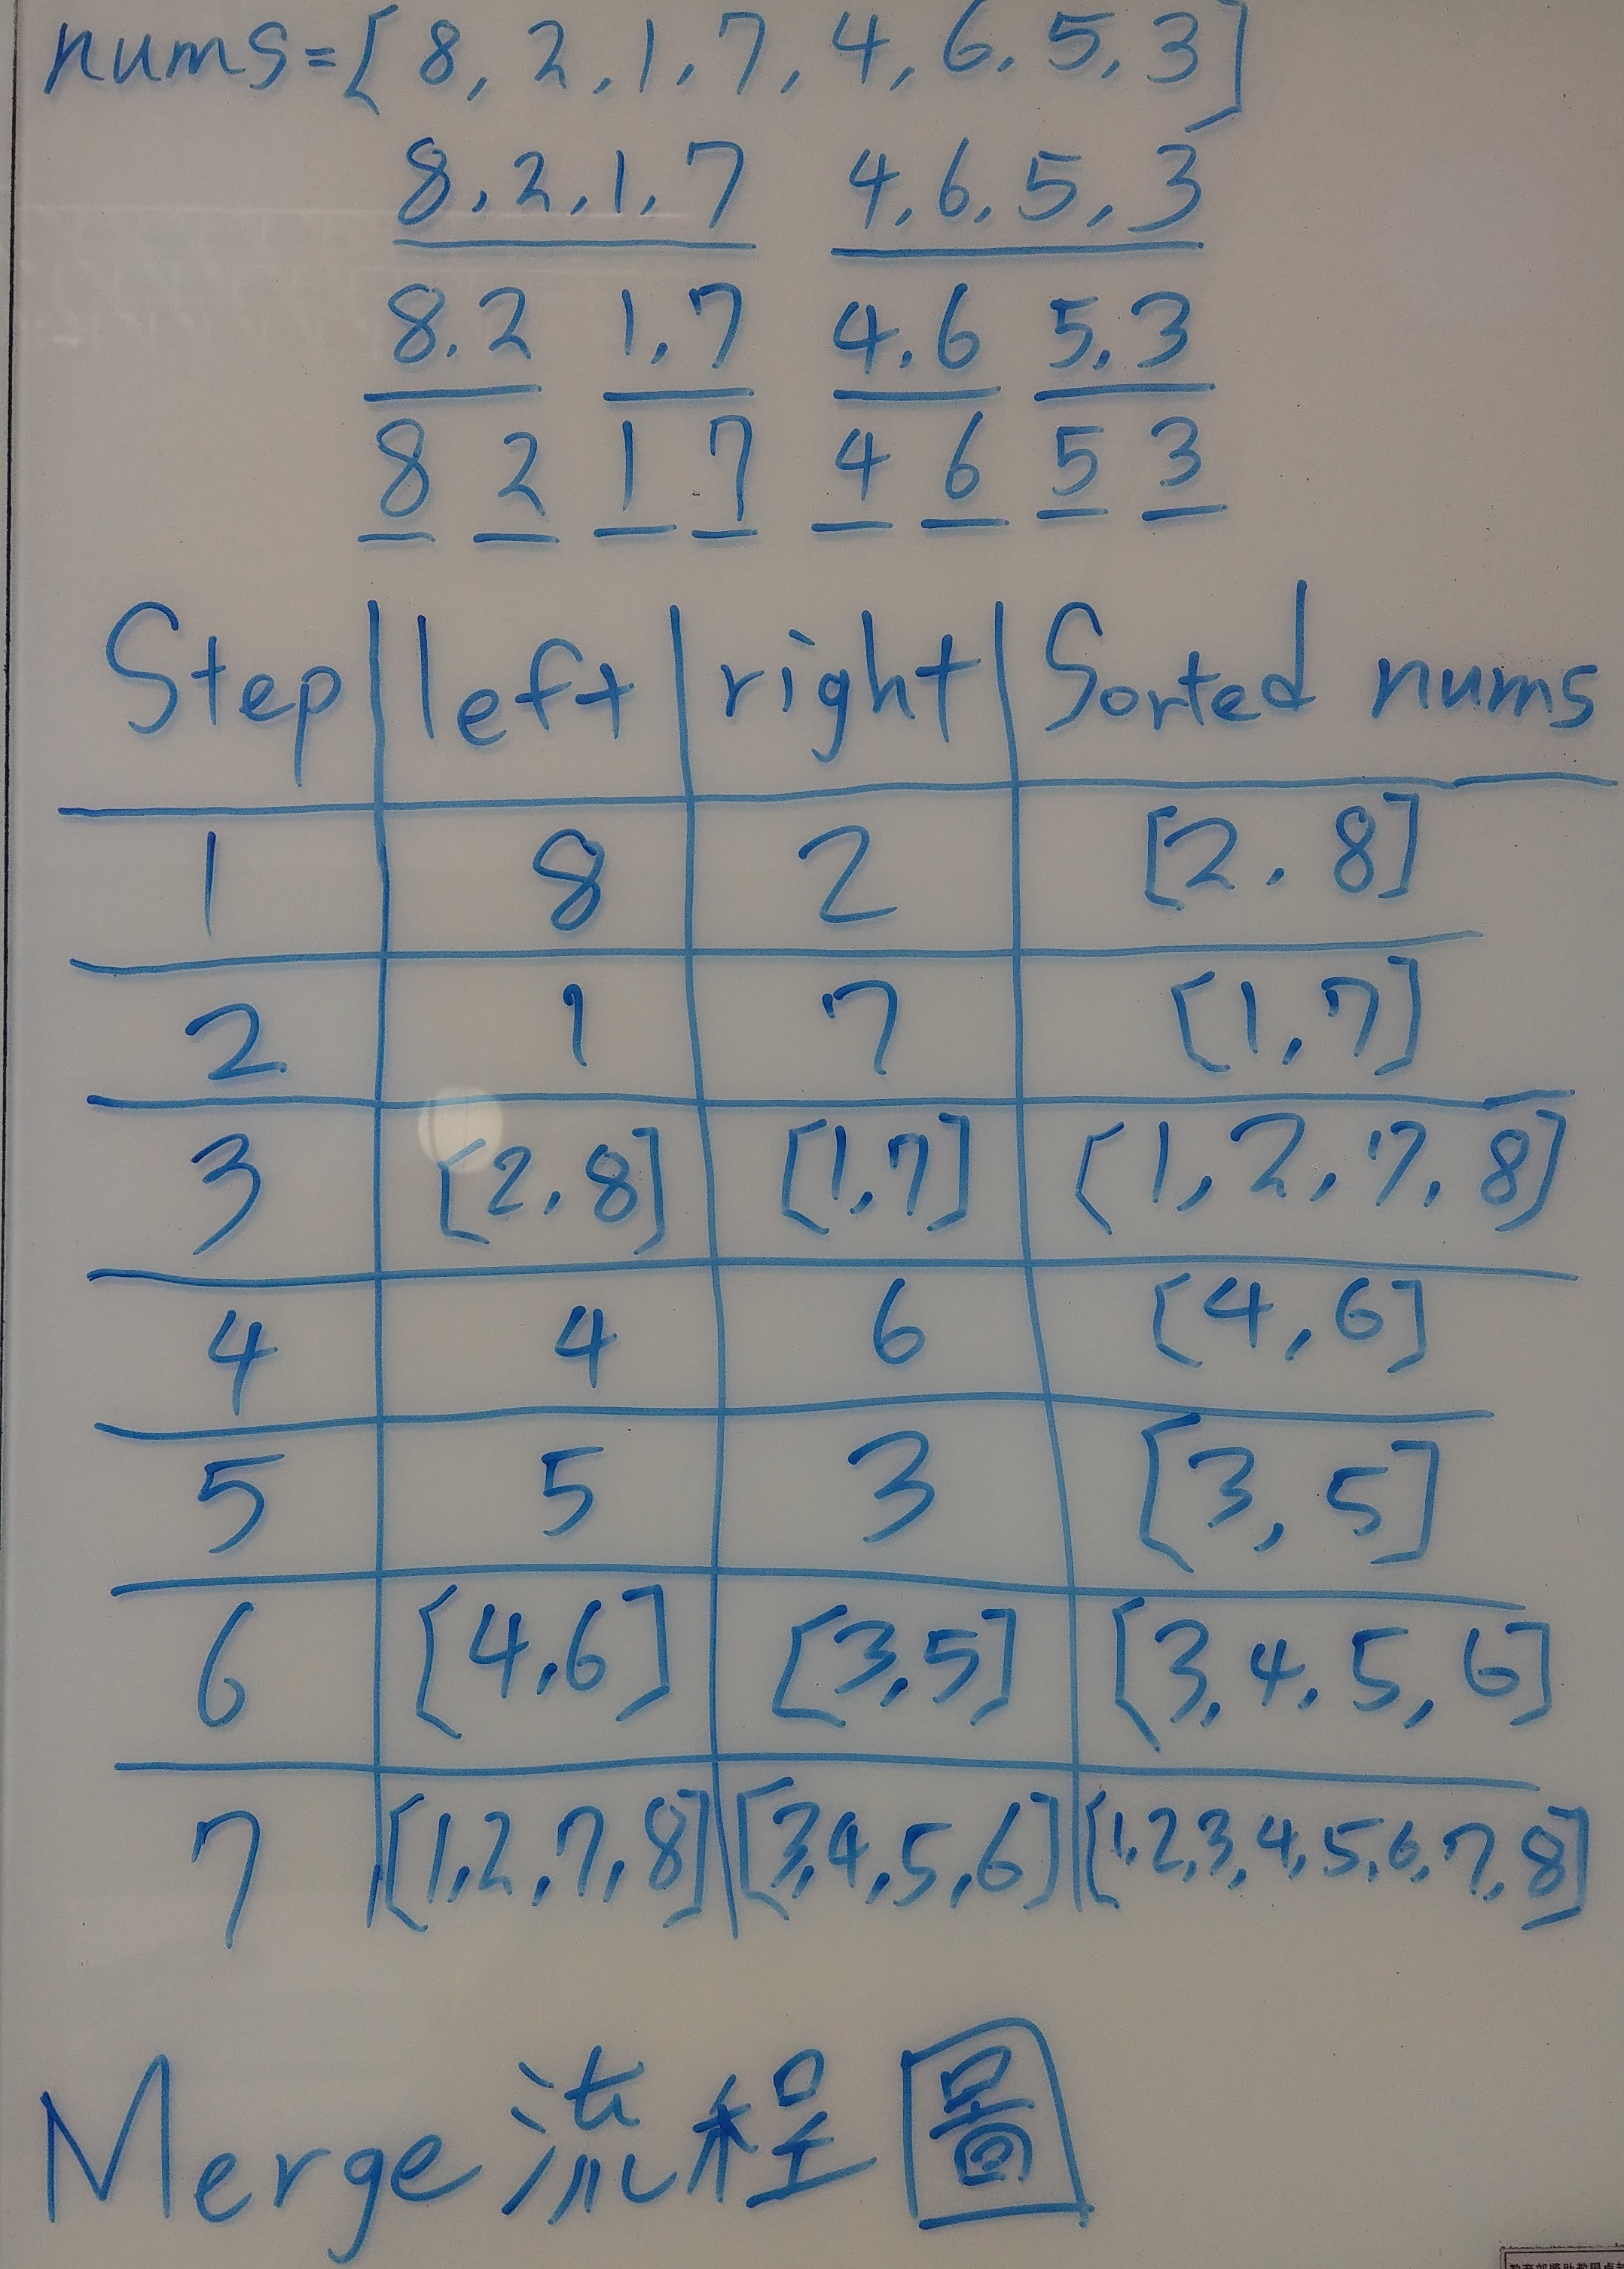 nums=[8, 2, 1, 7, 4, 6, 5, 3]
8, 2, 1, 7 4, 6, 5, 3
8, 2 1, 7 4, 6 5, 3
8 2 1 7 4 6 5 3
Step left right Sorted nums
1 8 2 [2, 8]
2 1 7 [1, 7]
3 [2, 8] [1, 7] [1, 2, 7, 8]
4 4 6 [4, 6]
5 5 3 [3, 5]
6 [4, 6] [3, 5] [3, 4, 5, 6]
7 [1, 2, 7, 8] [3, 4, 5, 6] [1, 2, 3, 4, 5, 6, 7, 8]
Merge 流程圖